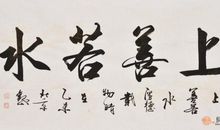 上善若水
上善
水
厚德
載
物時
在
乙未